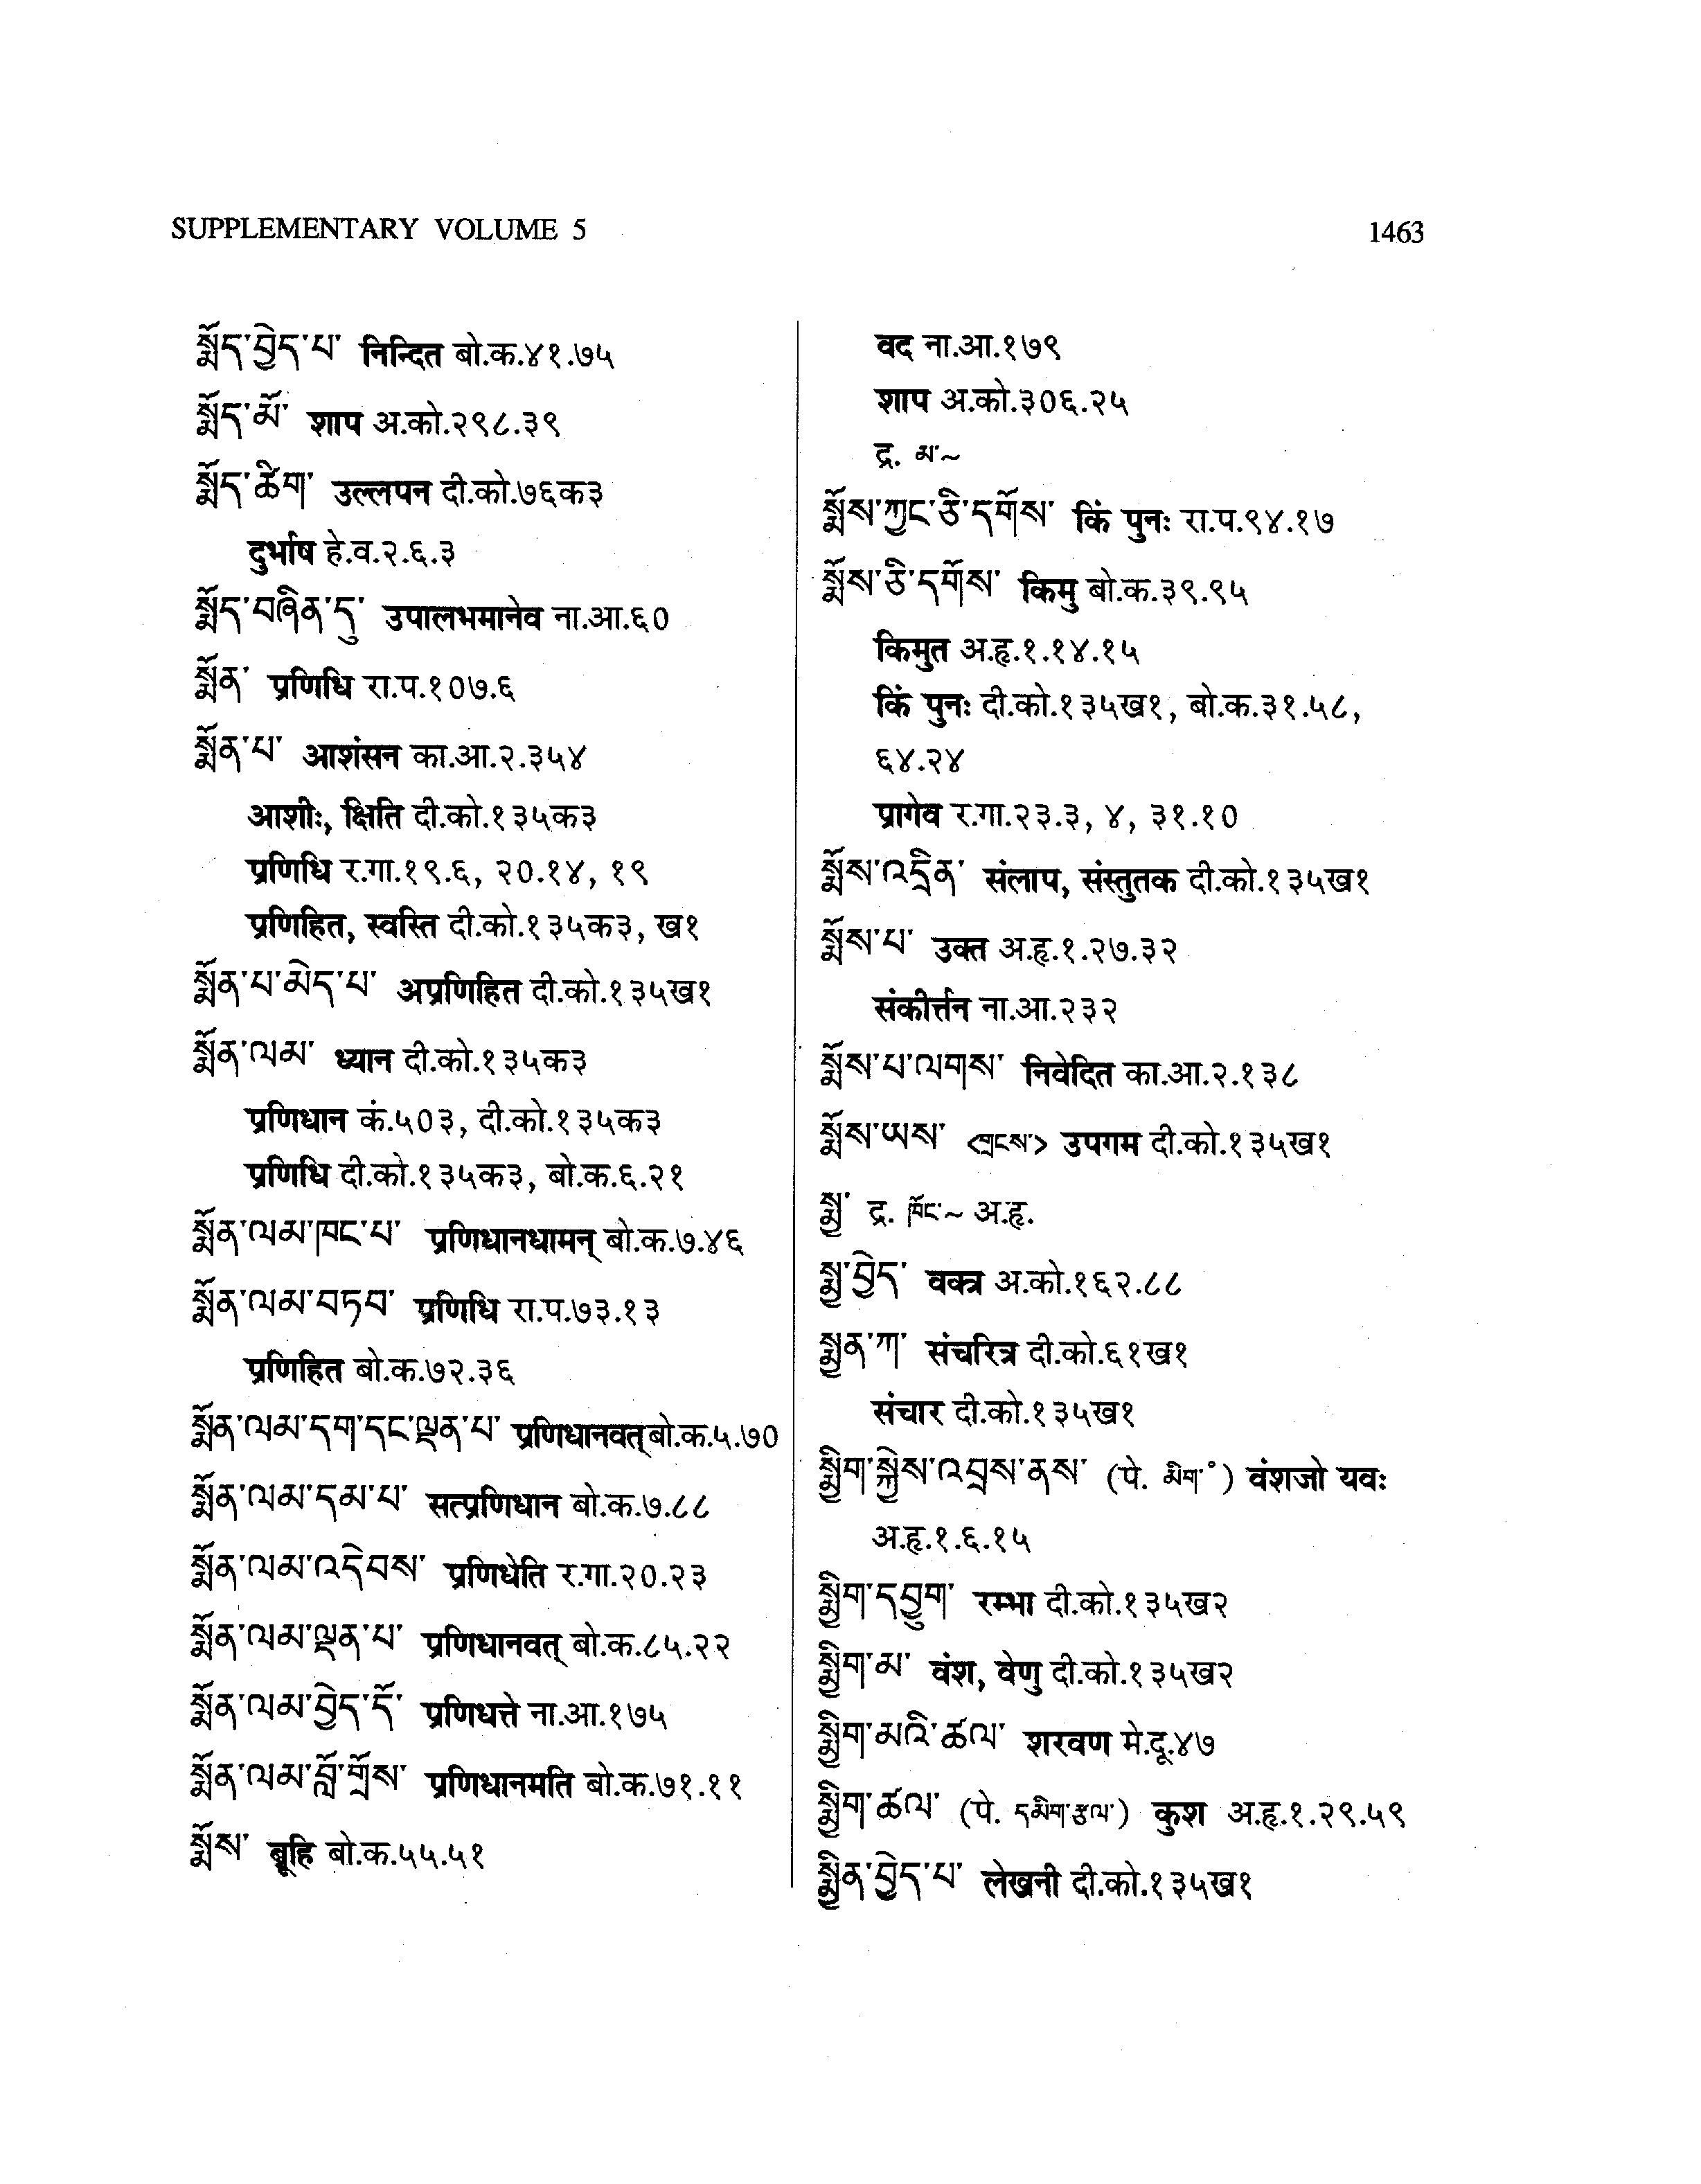 SUPPLEMENTARY VOLUME 5
1463
སྨོད་བྱེད་པ་ निन्दित बो.क.४१.७५
སྨོད་མོ་ शाप अ.को.२९८.३९
སྨོད་ཚིག་ उल्लपन दी.को.७६क३
दुर्भाष हे.व.२.६.३
སྨོད་བཞིན་དུ་ उपालभमानेव ना.आ.६०
སྨོན་ प्रणिधि रा.प.१०७.६
སྨོན་པ་ आशंसन का.आ.२.३५४
आशीः, क्षिति दी.को.१३५क३
प्रणिधि र.गा.१९.६, २०.१४, १९
प्रणिहित, स्वस्ति दी.को.१३५क३, ख१
སྨོན་པ་མེད་པ་ अप्रणिहित दी.को.१३५ख१
སྨོན་ལམ་ ध्यान दी.को.१३५क३
प्रणिधान कं.५०३, दी.को.१३५क३
प्रणिधि दी.को.१३५क३, बो.क.६.२१
སྨོན་ལམ་ཁང་པ་ प्रणिधानधामन् बो.क.७.४६
སྨོན་ལམ་བཏབ་ प्रणिधि रा.प.७३.१३
प्रणिहित बो.क.७२.३६
སྨོན་ལམ་དག་དང་ལྡན་པ་ प्रणिधानवत् बो.क.५.७०
སྨོན་ལམ་དམ་པ་ सत्प्रणिधान बो.क.७.८८
སྨོན་ལམ་འདེབས་ प्रणिधेति र.गा.२०.२३
སྨོན་ལམ་ལྡན་པ་ प्रणिधानवत् बो.क.८५.२२
སྨོན་ལམ་བྱེད་དོ་ प्रणिधत्ते ना.आ.१७५
སྨོན་ལམ་བློ་གྲོས་ प्रणिधानमति बो.क.७१.११
སྨོས་ ब्रूहि बो.क.५५.५१
वद ना.आ.१७९
शाप अ.को.३०६.२५
द्र. མ་~
སྨོས་ཀྱང་ཅི་དགོས་ किं पुनः रा.प.९४.१७
སྨོས་ཅི་དགོས་ किमु बो.क.३९.९५
किमुत अ.हृ.१.१४.१५
किं पुनः दी.को.१३५ख१, बो.क.३१.५८,
६४.२४
प्रागेव र.गा.२३.३, ४, ३१.१०
སྨོས་འདྲིན་ संलाप, संस्तुतक दी.को.१३५ख१
སྨོས་པ་ उक्त अ.हृ.१.२७.३२
संकीर्त्तन ना.आ.२३२
སྨོས་པ་ལགས་ निवेदित का.आ.२.१३८
སྨོས་ཡས་ <གྲངས་> उपगम दी.को.१३५ख१
སྨྱ་ द्र. ཁོང་~ अ.हृ.
སྨྱ་བྱེད་ वक्त्र अ.को.१६२.८८
སྨྱན་ཀ་ संचरित्र दी.को.६१ख१
संचार दी.को.१३५ख१
སྨྱིག་སྐྱེས་འབྲས་ནས་ (पे. མིག་°) वंशजो यवः
अ.हृ.१.६.१५
སྨྱིག་དབྱུག་ रम्भा दी.को.१३५ख२
སྨྱིག་མ་ वंश, वेणु दी.को.१३५ख२
སྨྱིག་མའི་ཚལ་ शरवण मे.दू.४७
སྨྱིག་ཚལ་ (पे. དམིག་རྩལ་) कुश अ.हृ.१.२९.५९
སྨྱིན་བྱེད་པ་ लेखनी दी.को.१३५ख१